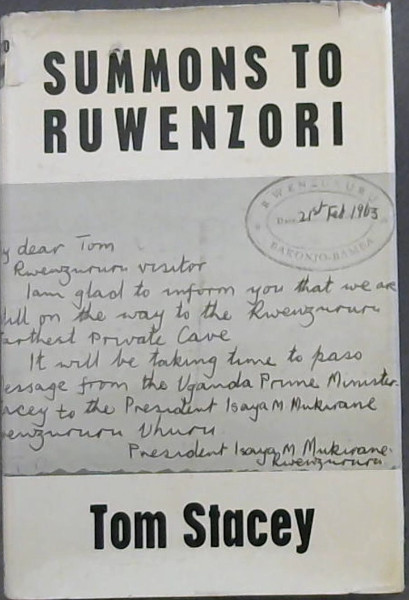 SUMMONS TO
RUWENZORI
RWENZURURU
Date 21st Feb 1963
BAKONJO-BAMBA
y dear Tom
Rwenzururu visitor
I am glad to inform you that we are
till on the way to the Rwenzururu
arthest Private Cave
It will be taking time to pass
essage from the Uganda Prime Minister
acey to the President Isaya M Mukirane
wenzururu Uhuru
President Isaya M Mukirane.
Rwenzururu
Tom Stacey